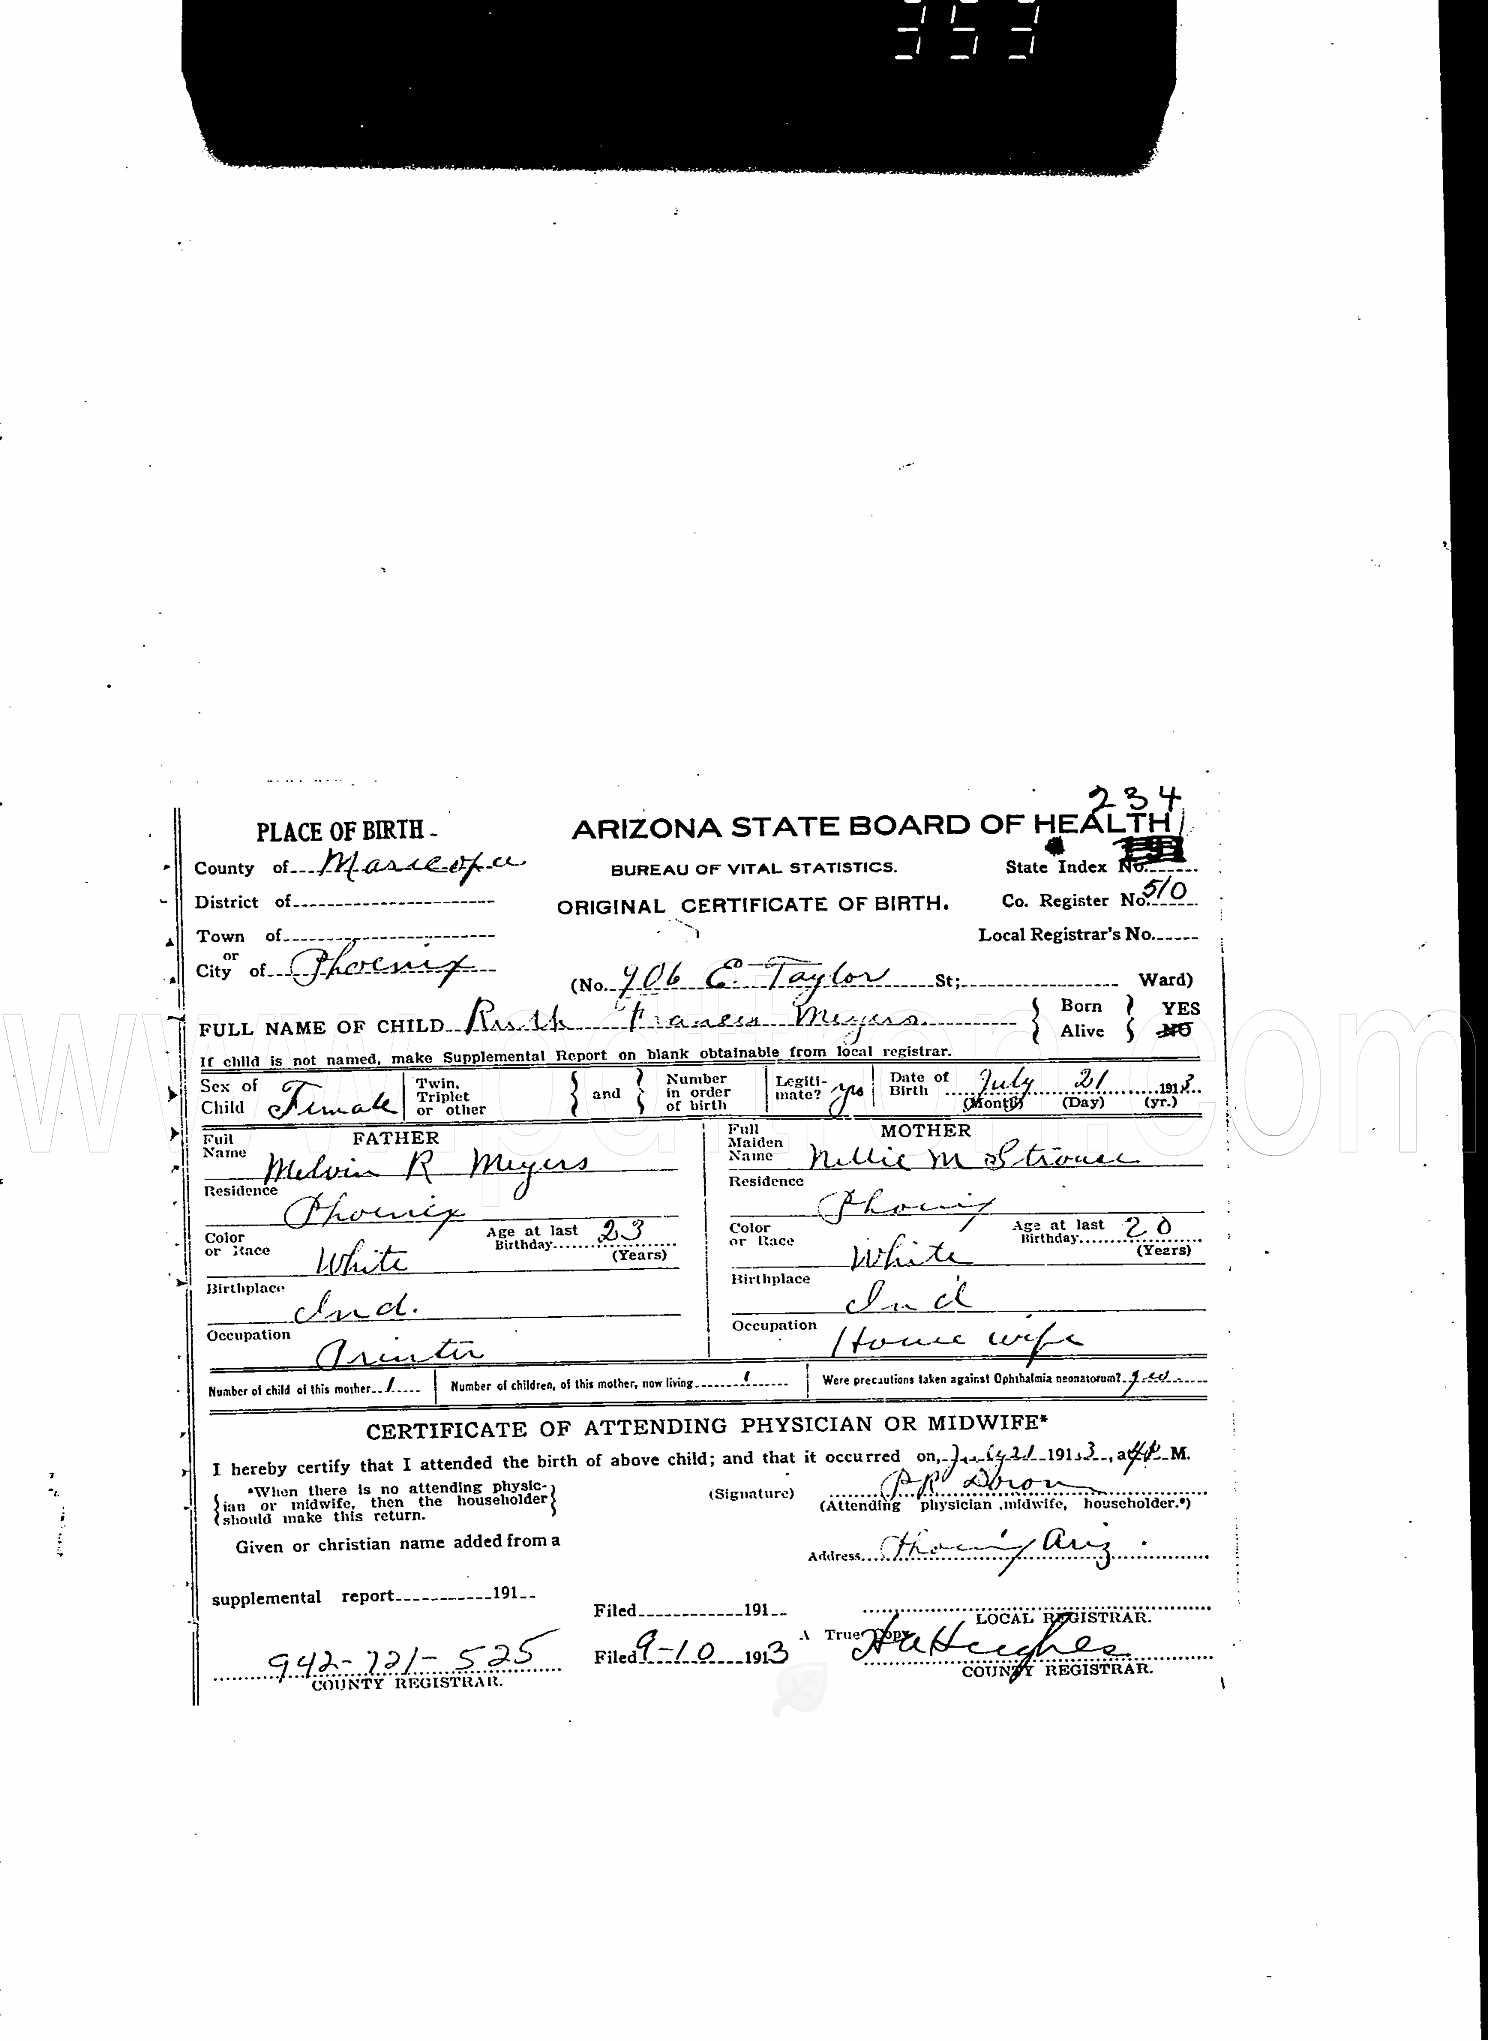 353
234
PLACE OF BIRTH
ARIZONA STATE BOARD OF HEALTH
County of Maricopa
BUREAU OF VITAL STATISTICS.
State Index No.
District of
ORIGINAL CERTIFICATE OF BIRTH.
Co. Register No. 510
Town of
Local Registrar's No.
or
City of Phoenix
(No. 906 E. Taylor St; Ward)
FULL NAME OF CHILD Ruth Frances Meyers
Born Alive YES NO
If child is not named, make Supplemental Report on blank obtainable from local registrar.
Sex of Child Female
Twin, Triplet or other
and
Number in order of birth
Legitimate? yes
Date of Birth July 21 1913
(Month) (Day) (yr.)
FATHER
Full Name Melvin R Meyers
Residence Phoenix
Color or Race White
Age at last Birthday 23 (Years)
Birthplace Ind.
Occupation Printer
MOTHER
Full Maiden Name Nellie M Strouse
Residence Phoenix
Color or Race White
Age at last Birthday 20 (Years)
Birthplace Ind
Occupation House wife
Number of child of this mother 1
Number of children, of this mother, now living 1
Were precautions taken against Ophthalmia neonatorum? yes
CERTIFICATE OF ATTENDING PHYSICIAN OR MIDWIFE*
I hereby certify that I attended the birth of above child; and that it occurred on, July 21 1913, at 4 P. M.
*When there is no attending physician or midwife, then the householder should make this return.
(Signature)
(Attending physician, midwife, householder.*)
Given or christian name added from a
Address Phoenix Ariz
supplemental report 191
Filed 191
LOCAL REGISTRAR.
A True Copy
942-721-525
Filed 9-10 1913
H A Hughes
COUNTY REGISTRAR.
COUNTY REGISTRAR.